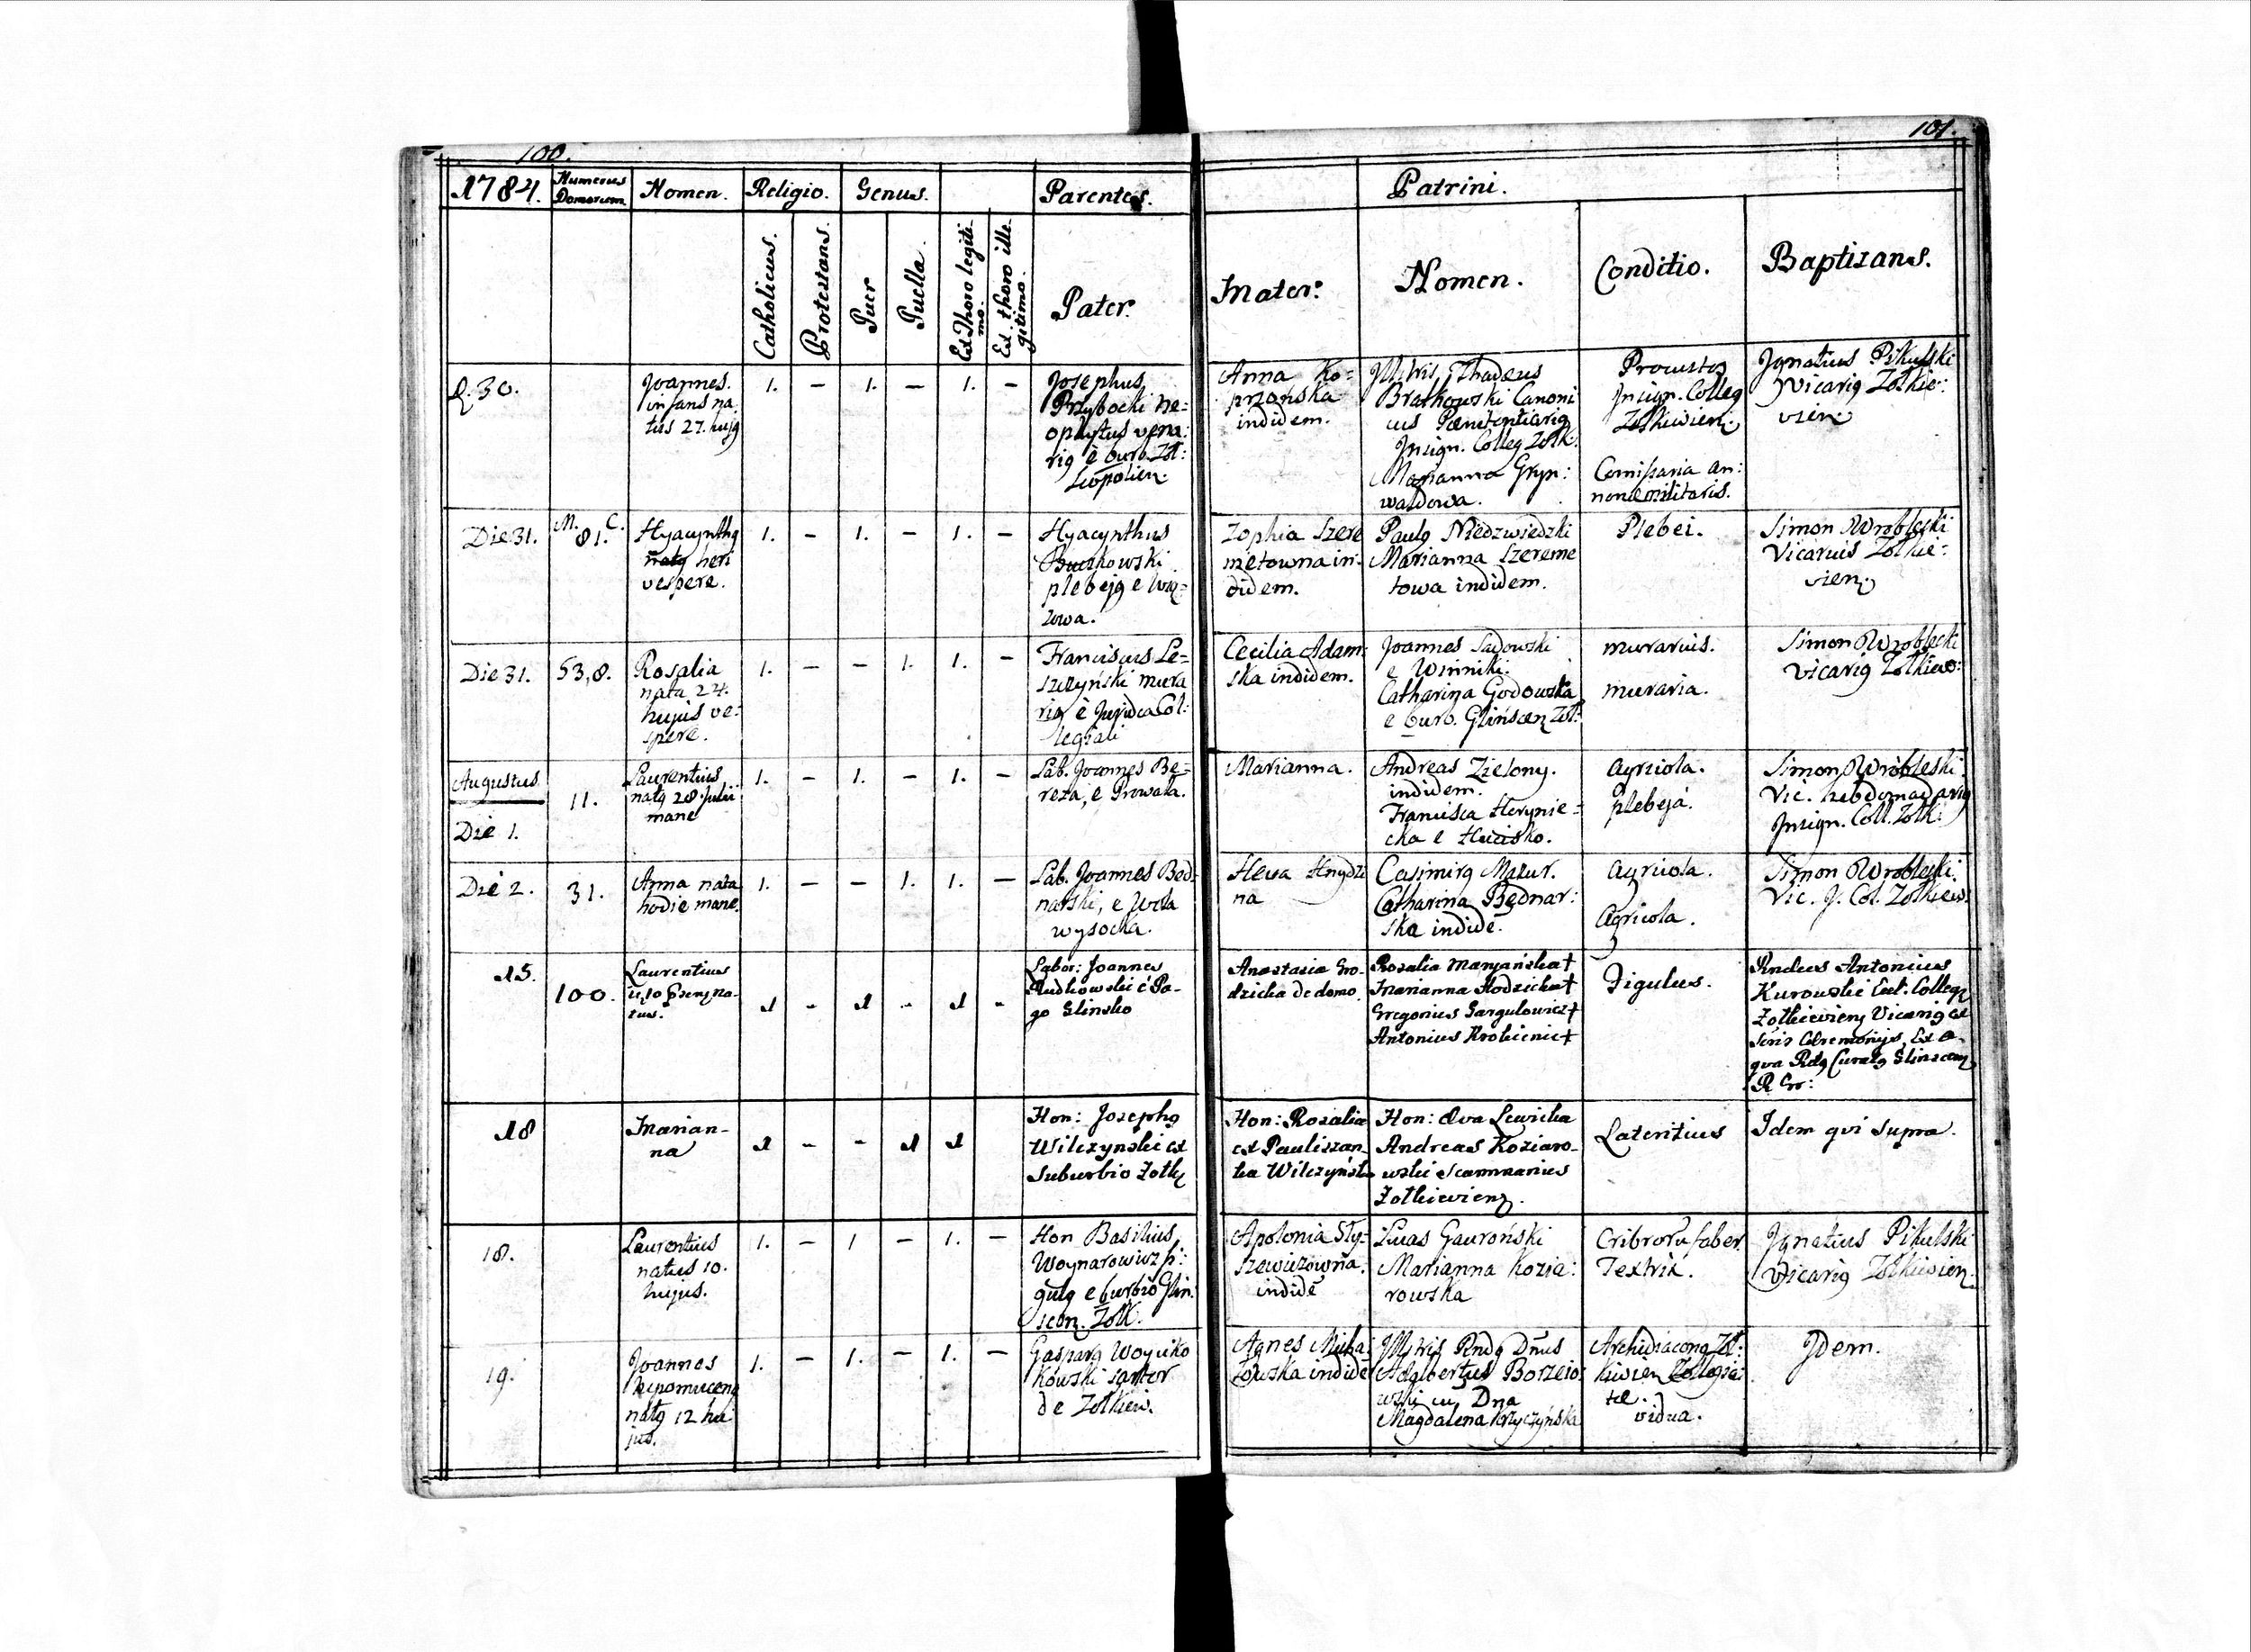 100.
101.
1784.
Numerus
Domorum
Nomen.
Religio.
Genus.
Parentes.
Patrini.
Catholicus.
Protestans.
Puer
Puella.
Ex Thoro legiti-
mo.
Ex thoro ille-
gitimo.
Pater.
Mater.
Nomen.
Conditio.
Baptizans.
D. 30.
Joannes.
infans na.
tus 27. hujg
1. – 1. – 1. –
Josephus
Przybocki ne=
ophytus vena:
rig è burb. Zół:
Leopolien.
Anna Ko=
przońska
indidem.
Jllstris Thadeus
Bratkowski Canoni
cus Pænitentiarig
Jnsign. Colleg Zołk.
Marianna Gryn:
waldowa.
Procustos
Jnsign. Colleg
Zołkiewien.
Comissaria an:
nonæ militaris.
Jgnatius Pikulski
Vicarig Zołkie:
vien
Die 31.
M. 81. C.
Hyacynthg
natg heri
vespere.
1. – 1. – 1. –
Hyacynthus
Buczkowski
plebejg e Wią=
zowa.
Zophia Szere
metowna in:
didem.
Paulg Niedzwiedzki
Marianna Szereme
towa indidem.
Plebei.
Simon Wrobleski
Vicarius Zołkie:
vien.
Die 31.
53, 8.
Rosalia
nata 24.
hujus ve:
spere.
1. – – 1. 1. –
Franciscus Le=
szczyński mura
rig è Juridca Col:
legiali
Cecilia Adam:
ska indidem.
Joannes Sadowski
e Winniki.
Catharina Godowska
e burb. Glińscen Zoł:
murarius.
muraria.
Simon Wrobleski
vicarig Zołkiew:
Augustus
Die 1.
11.
Laurentius
natg 28. Julii
mane
1. – 1. – 1. –
Lab. Joannes Be=
reza, e Prowala.
Marianna.
Andreas Zielony.
indidem.
Francisca Herynie=
cka e Hucisko.
agricola.
plebeja.
Simon Wrobleski.
Vic. hebdomadarig
Jnsign. Coll. Zołk:
Die 2.
31.
Anna nata
hodie mane.
1. – – 1. 1. –
Lab. Joannes Bed-
narski, e Wola
wysocka.
Heva Hnydzi
na
Casimirg Mazur.
Catharina Bednar:
ska indide.
agricola.
Agricola.
Simon Wrobleski.
Vic. J. Col. Zołkiew.
15.
100.
Laurentius
10 na-
tus.
1 - 1 - 1 -
Labor: Joannes
Rudkowski è Pa-
go Glinsko
Anastasia Gro-
dzicka de domo.
Rosalia Maryańska +
Marianna Hodzicka +
Gregorius Gargulowicz +
Antonius Krolicnic +
Figulus.
Rndus Antonius
Kurowski Ecl. Colleg
Zołkieviens Vicarig ex
Ceremonijs, Ex a-
qva Rdg Curatg Glinscens
R Gr:
18
Marian-
na
1 - - 1 1
Hon: Josephg
Wilczynski ex
Suburbio Zołk
Hon: Rosalia
ex Pauliszan-
ka Wilczyńsk
Hon: Eva Lewicka
Andreas Koziaro-
wski Scamnarius
Zołkieviens.
Lateritius
Idem qvi supra.
18.
Laurentius
natus 10.
hujus.
1. – 1 – 1. –
Hon Basilius
Woynarowisz fi:
gulg e burbio Glin.
scen. Zołk.
Apolonia Sły-
szewiczowna.
indide
Lucas Gauroński
Marianna Kozia:
rowska
Cribroru faber.
Textrix.
Jgnatius Pikulski
Vicarig Zołkiewien:
19.
Joannes
Nepomuceng
natg 12 hu
jus.
1. – 1. – 1. –
Gasparg Woyciko
kowski sartor
de Zołkiew.
Agnes Micha:
łowska indide
Jllstris Rndg Dnus
Adalbertus Borzeio:
wski cu Dna
Magdalena Krzyczyńska
Archidiacong Zoł:
kiwien Collegia:
tæ.
vidua.
Jdem.